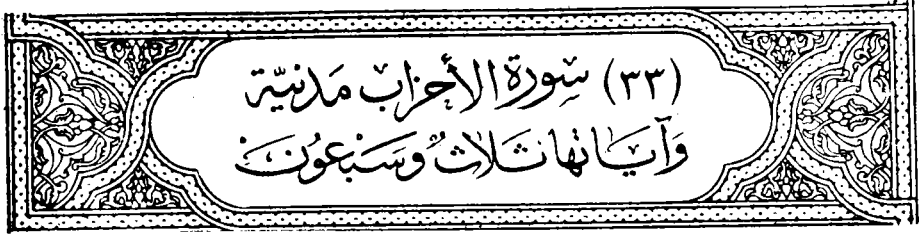 (٣٣) سُورَةُ الأَحْزَابِ مَدَنِيَّة
وَآيَاتُهَا ثَلَاثٌ وَسَبْعُونَ